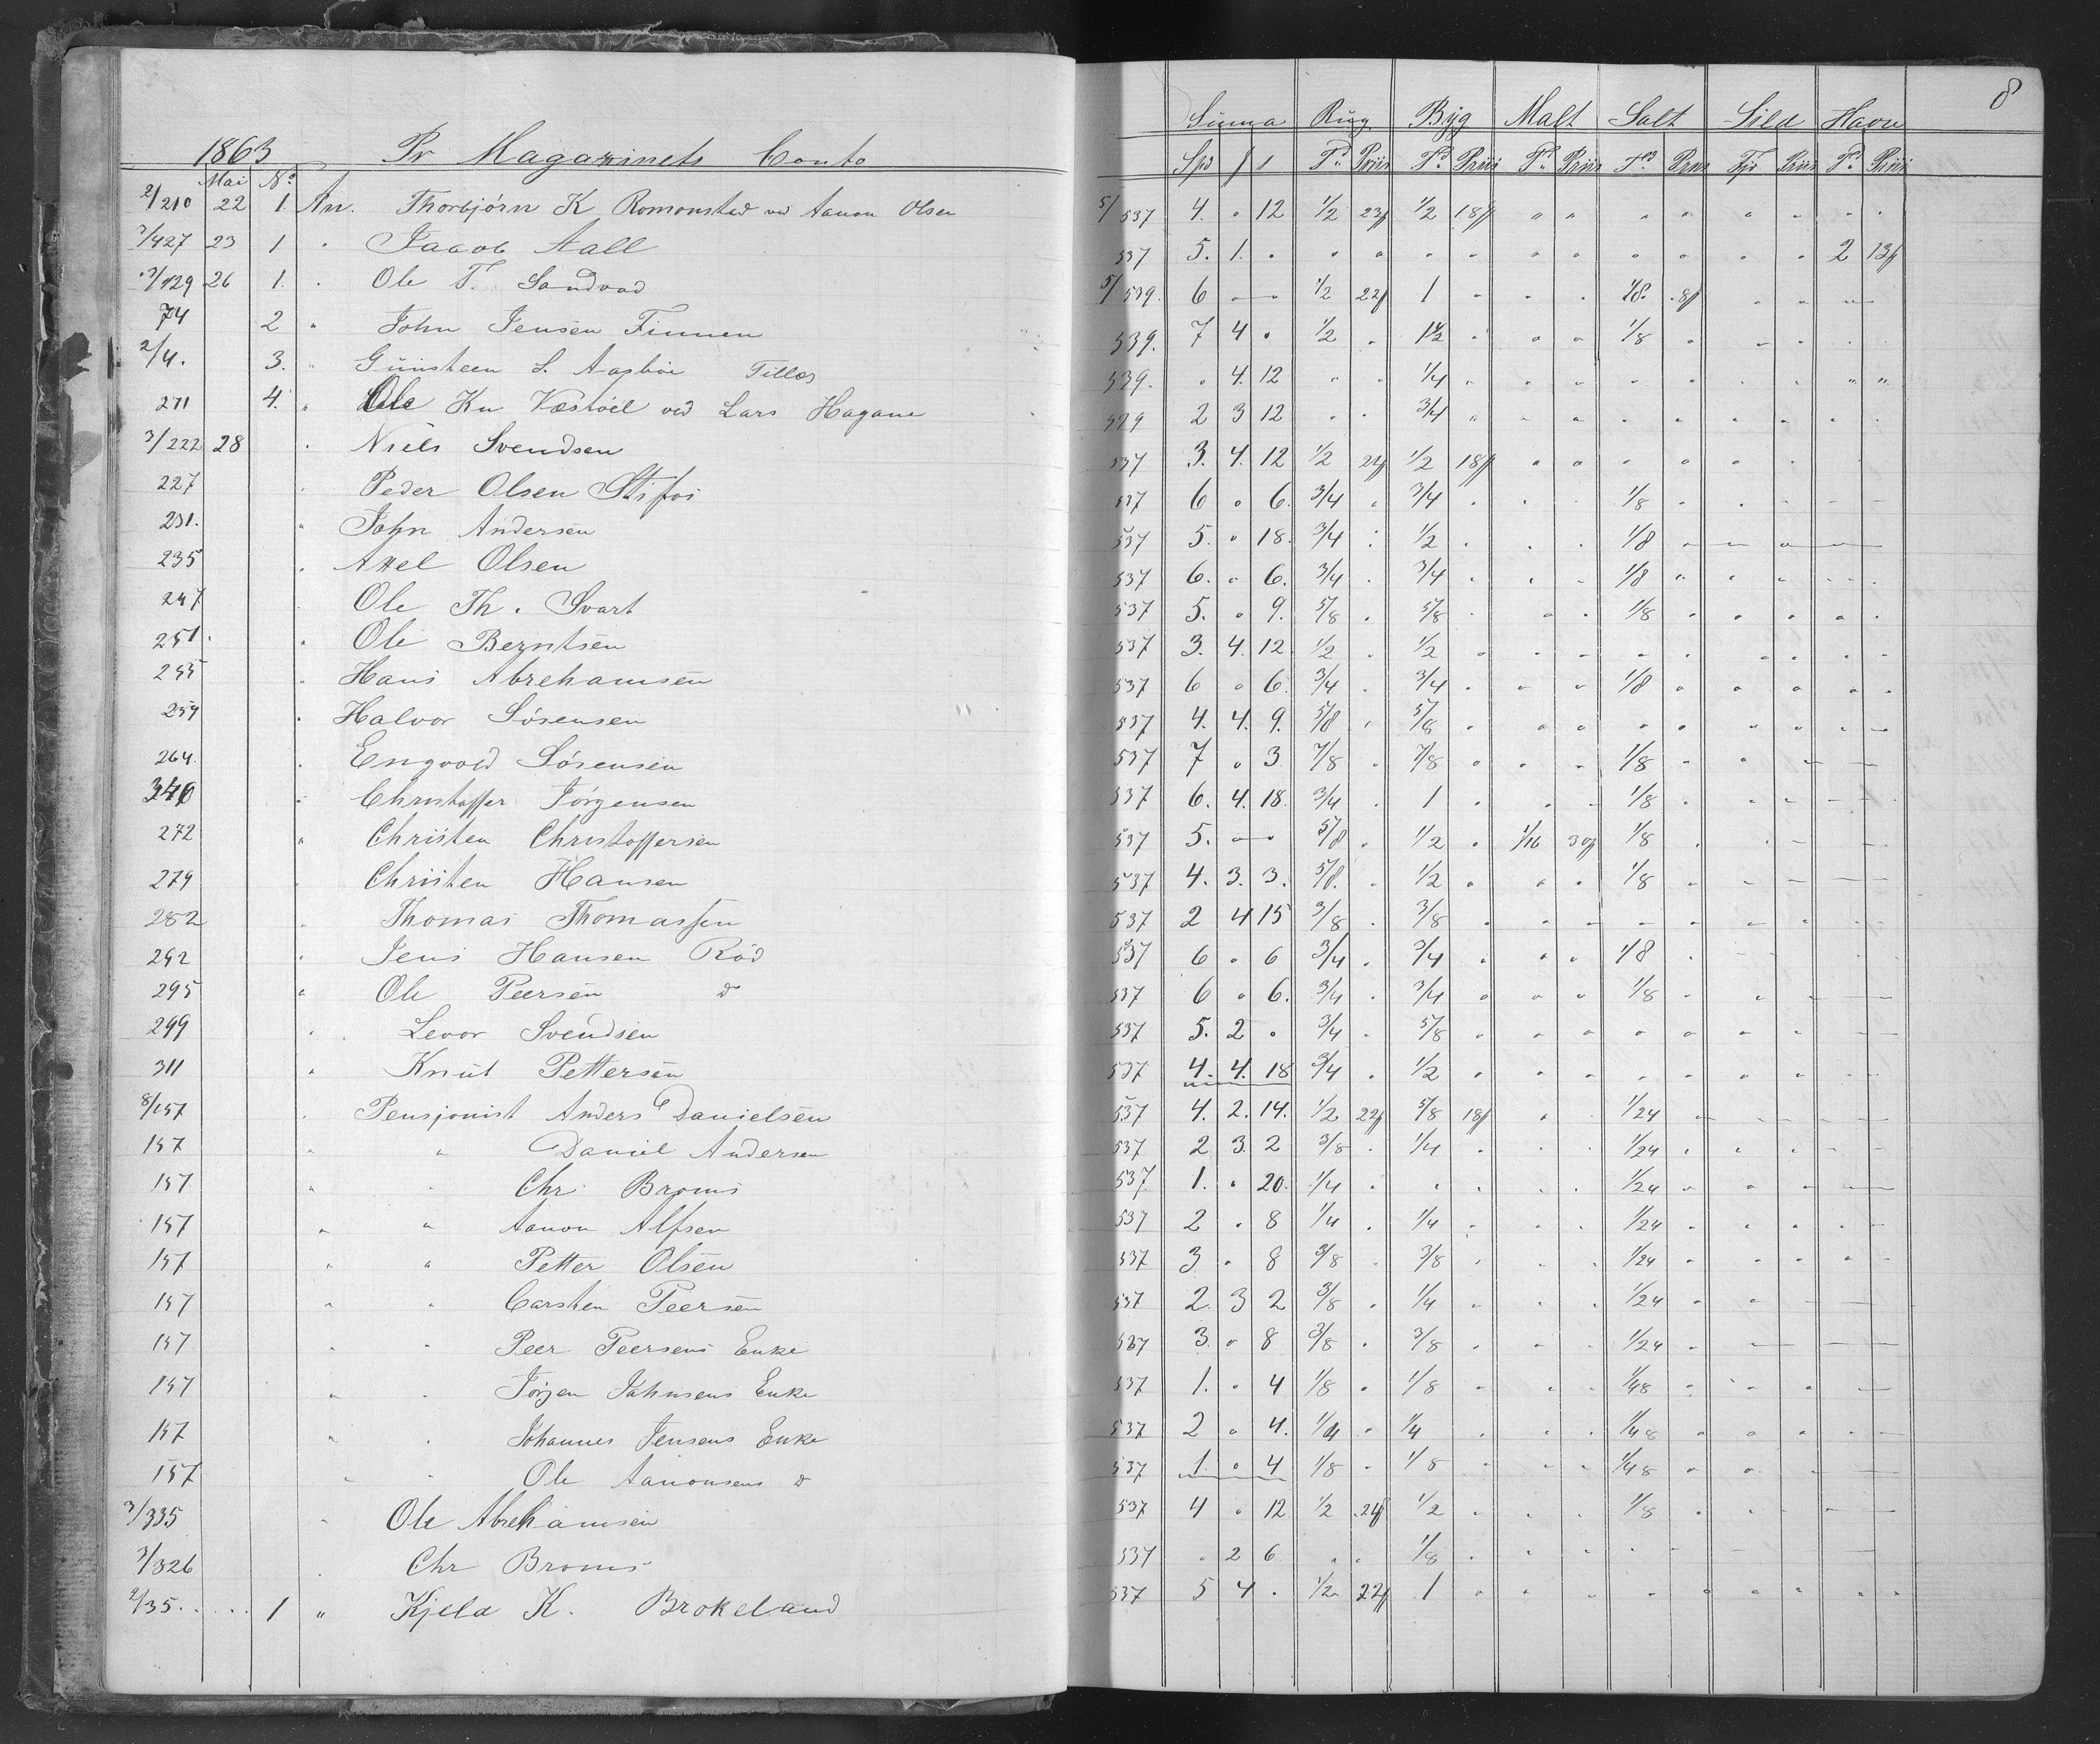 8
Summa Rug Byg Malt Salt Sild Havre
1863 Pr Magazinets Conto
Mai No. Spd T. Priis T. Priis T. Priis T. Priis Priis T. Priis
2/210 22 1. An. Thorbjørn K Romonstad ved Aanon Olsen 5/537 4. " 12 1/2 23 1/2 18
3/427 23 1 " Jacob Aall 537 5. 1. " 2 13
3/129 26 1. " Ole T. Sandvad 5/539. 6 — 1/2 22 1 " 1/8 8
74 2 " John Jensen Finnen 539. 7 4 " 1/2 " 1 1/2 " 1/8
2/4. 3. " Gunsteen S. Aasbøe Tillæg 539. " 4. 12 " " 1/4
271 4. " Ole Kn Væstøel ved Lars Hagane 539 2 3 12 " " 3/4
3/222 28 " Niels Svendsen 537 3. 4. 12 1/2 22 1/2 18
227 " Peder Olsen Stifos 537 6 " 6. 3/4 " 3/4 " 1/8
231. " John Andersen 537 5. " 18. 3/4 " 1/2 " 1/8
235 " Axel Olsen 537 6. " 6. 3/4 " 3/4 " 1/8
247 " Ole Th. Svart 537 5. " 9. 5/8 " 5/8 " 1/8
251. " Ole Berntsen 537 3. 4. 12. 1/2 " 1/2
255 " Hans Abrehamsen 537 6 " 6. 3/4 " 3/4 " 1/8
259 " Halvor Sørensen 537 4. 4. 9. 5/8 " 5/8
264. " Engvold Sørensen 537 7 " 3 7/8 " 7/8 " 1/8
340 " Christoffer Jørgensen 537 6. 4. 18. 3/4 " 1 " 1/8
272 " Christen Christoffersen 537 5. — 5/8 " 1/2 " 1/16 30 1/8
279 " Christen Hansen 537 4. 3. 3. 5/8. " 1/2 " 1/8
282 " Thomas Thomassen 537 2 4 15 3/8 " 3/8
292 " Jens Hansen Rød 537 6 " 6 3/4 " 3/4 " 1/8
295 " Ole Peersen do 537 6 " 6. 3/4 " 3/4 " 1/8
299 " Levor Svendsen 537 5. 2 " 3/4 " 5/8
311 " Knut Pettersen 537 4. 4. 18 3/4 " 1/2
8/157 " Pensjonist Anders Danielsen 537 4. 2. 14. 1/2 22 5/8 18 " 1/24
157 " " Daniel Andersen 537 2 3. 2 3/8 " 1/4 " 1/24
157 " " Chr. Broms 537. 1. " 20. 1/4 " " " 1/24
157 " " Aanon Alfsen 537 2 " 8 1/4 " 1/4 " 1/24
157 " " Petter Olsen 537 3 " 8 3/8 " 3/8 " 1/24
157 " " Carsten Peersen 537 2. 3 2 3/8 " 1/4 " 1/24
157 " " Peer Peersens Enke 537 3. " 8 3/8 " 3/8 " 1/24
157 " " Jørgen Jahnsens Enke 537 1. " 4 1/8 " 1/8 " 1/48
157 " " Johannes Jensens Enke 537 2 " 4. 1/4 " 1/4 " 1/48
157 " " Ole Aanonsens do 537 1. " 4 1/8 " 1/8 " 1/48
3/335 " Ole Abrehamsen 537 4 " 12 1/2 24 1/2 " 1/8
3/326 " Chr Broms 537 " 2 6 " " 1/8
2/35. 1 " Kjeld K. Brokeland 537 5 4 " 1/2 22 1